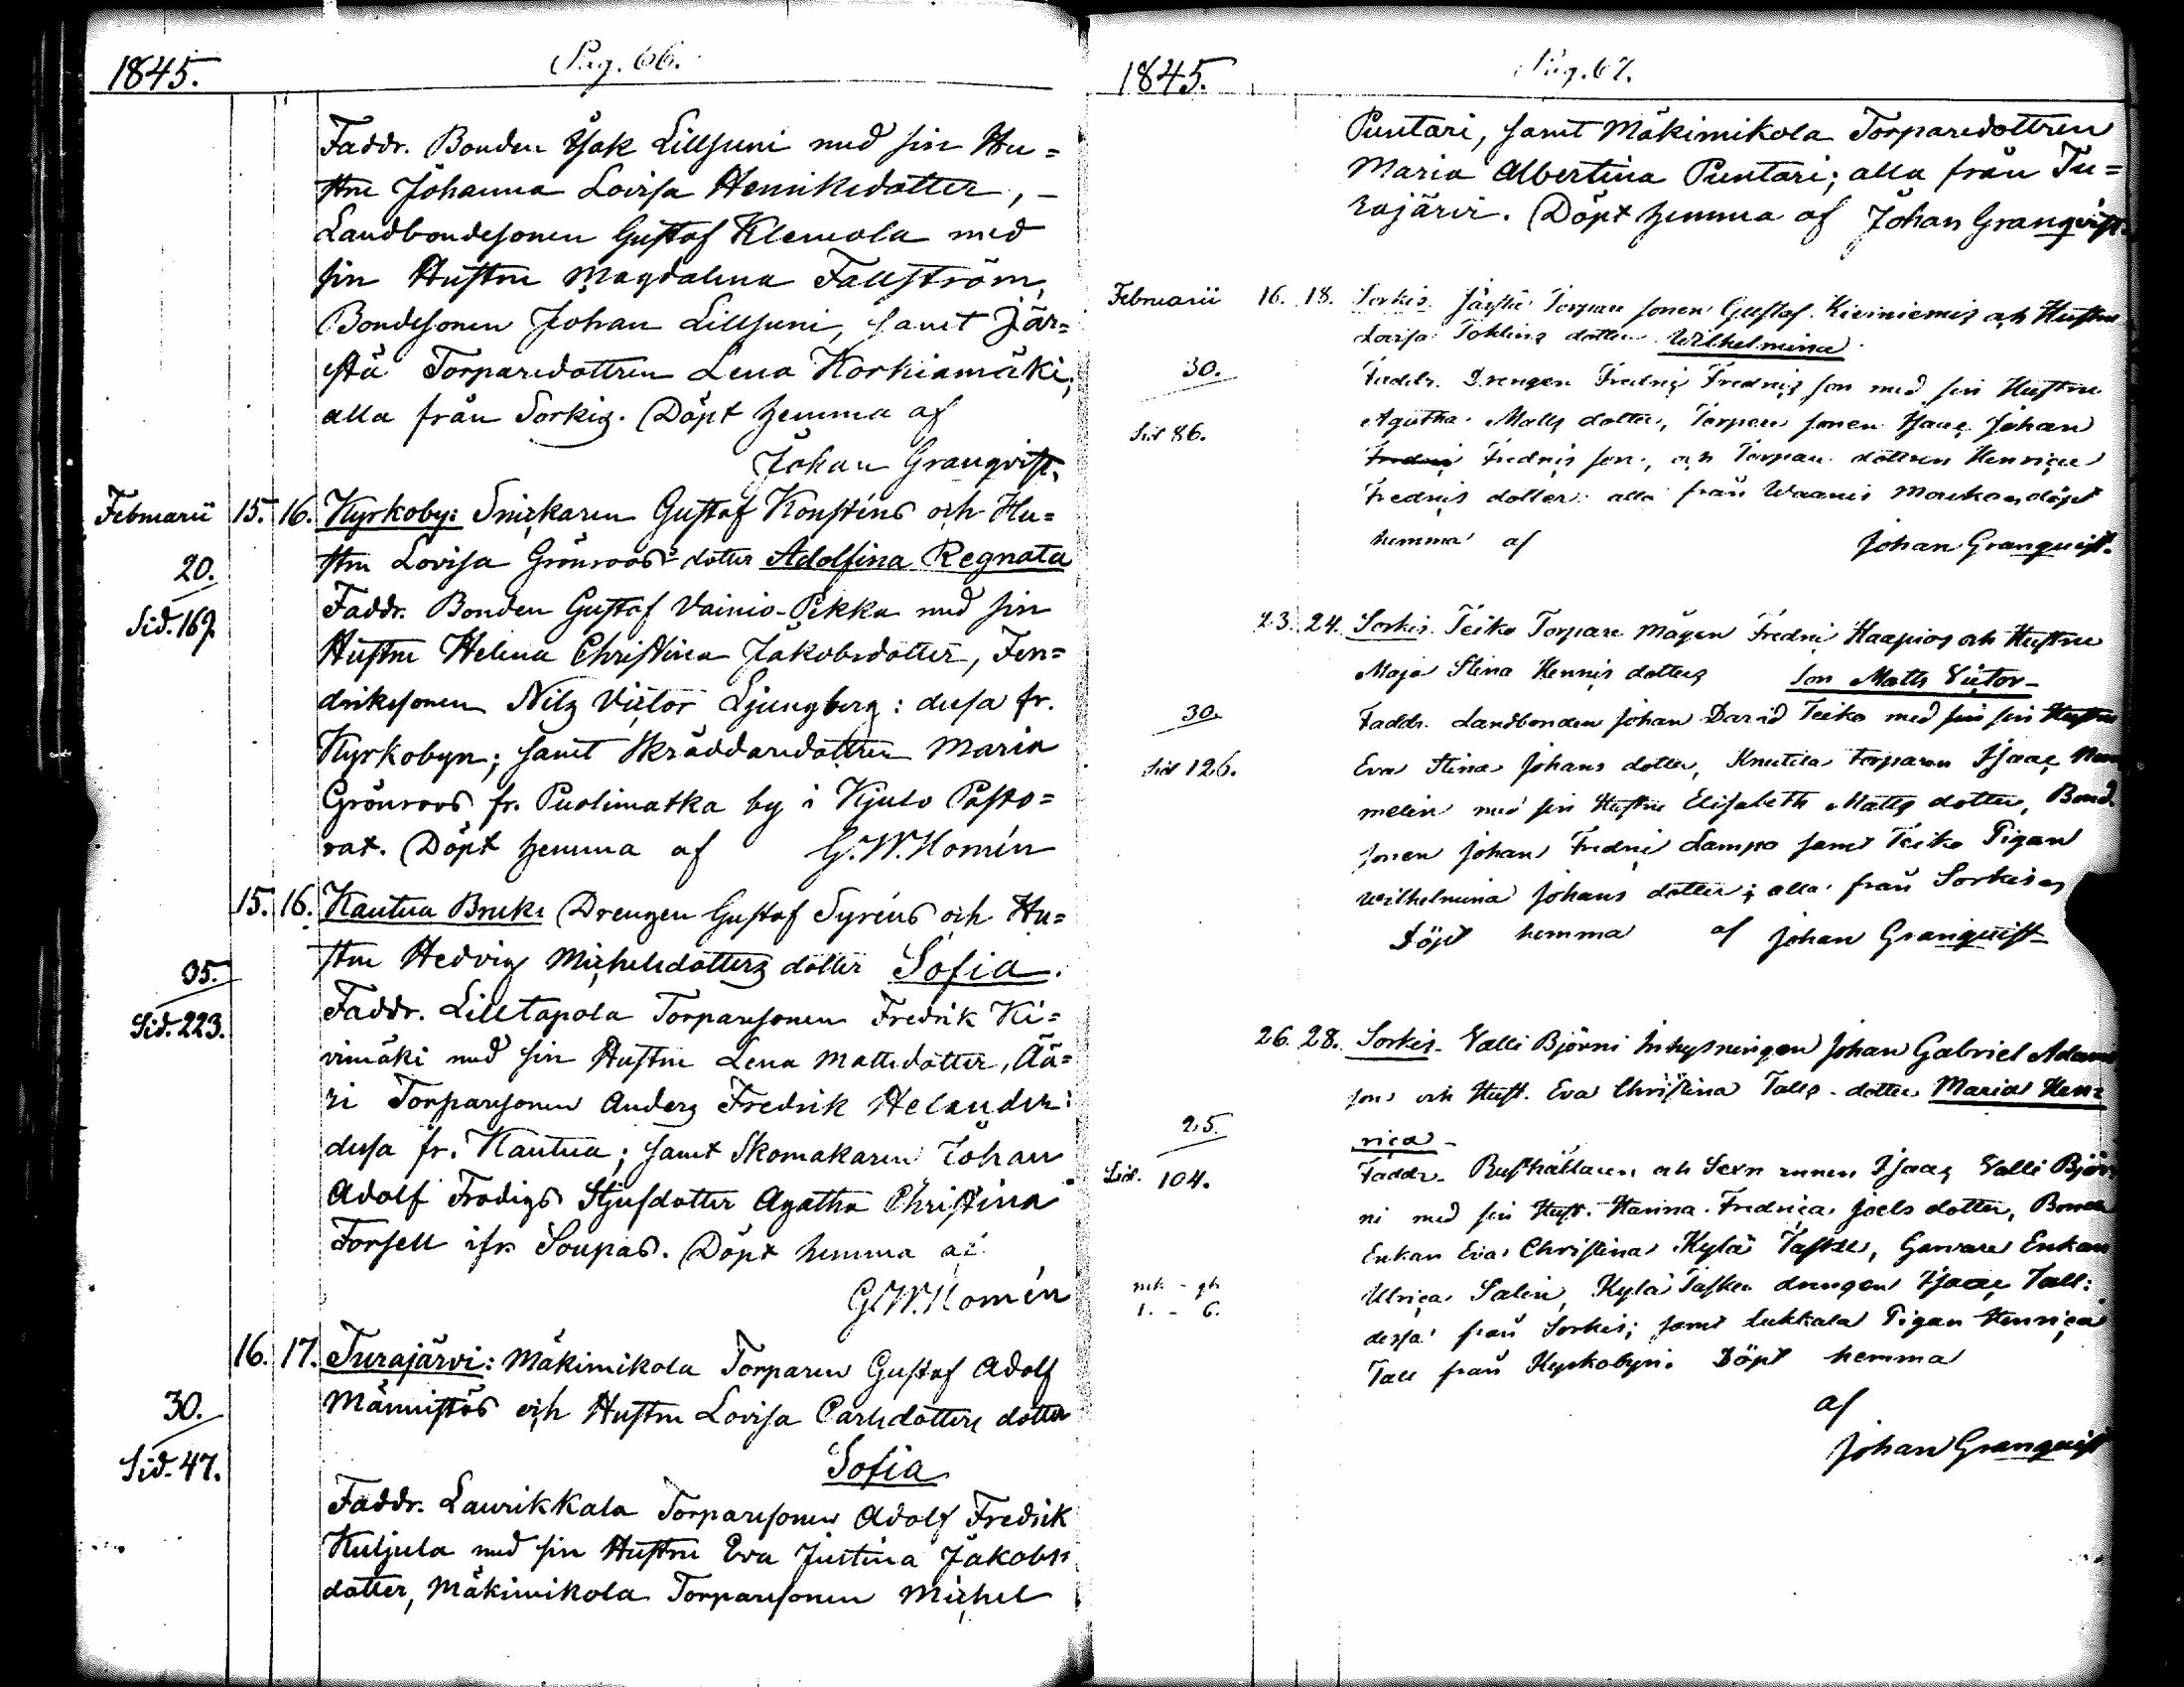 1845.
Pag. 66.
Faddr. Bonden Isak Lillsuni med sin Hu=
stru Johanna Lovisa Henriksdotter, –
Landbondesonen Gustaf Klemola med
sin Hustru Magdalena Fallström,
Bondesonen Johan Lillsuni, samt Jär=
stä Torparedottren Lena Korkiamäki;
alla från Sorkis. Döpt hemma af
Johan Granqvist.
Februarii 15. 16. Kyrkoby: Snickaren Gustaf Konsténs och Hu=
stru Lovisa Grönroos's dotter Adolfina Regnata
20.
Sid. 167.
Faddr. Bonden Gustaf Vainio-Pekka med sin
Hustru Helena Christina Jakobsdotter, Fen=
driksonen Nils Victor Ljungberg: dessa fr.
Kyrkobyn; samt Skräddaredottren Maria
Grönroos fr. Puolimatka by i Kjulo Pasto=
rat. Döpt hemma af G. W. Homén
15. 16. Kautua Bruk: Drengen Gustaf Syréns och Hu=
stru Hedvig Michelsdotters dotter Sofia.
35.
Sid. 223.
Faddr. Lilltapola Torparesonen Fredrik Ki=
vimäki med sin Hustru Lena Mattsdotter, Ää=
ri Torparesonen Anders Fredrik Helander:
dessa fr. Kautua; samt Skomakaren Johan
Adolf Frodigs Stjufdotter Agatha Christina
Forsell ifr. Soupas. Döpt hemma af
G. W. Homén
16. 17. Turajärvi: Mäkimikola Torparen Gustaf Adolf
Männistös och Hustru Lovisa Carlsdotters dotter
30.
Sid. 47.
Sofia
Faddr. Laurikkala Torparesonen Adolf Fredrik
Kuljula med sin Hustru Eva Justina Jakobs
dotter, Mäkimikola Torparesonen Michel
1845.
Pag. 67.
Puntari, samt Mäkimikola Torparedottren
Maria Albertina Puntari; alla från Tu=
rajärvi. Döpt hemma af Johan Granqvist.
Februarii 16. 18. Sorkis. Järstä Torpare sonen Gustaf Kiviniemis och Hustru
Lovisa Tohlins dotter Wilhelmina
30.
Sid 86.
Faddr. Drengen Fredric Fredrics son med sin Hustru
Agatha Matts dotter, Torpare sonen Isaac Johan
Fredric Fredrics son, och Torpare dottren Henrica
Fredrics dotter: alla från Waanis döpt
hemma af Johan Granquist.
23. 24. Sorkis. Teiko Torpare Mågen Fredric Haapios och Hustru
Maja Stina Henrics dotters son Matts Victor –
30.
Sid 126.
Faddr. Landbonden Johan David Teiko med sin sin Hustru
Eva Stina Johans dotter, Knutila torparen Isaac
melin med sin Hustru Elisabeth Matts dotter, Bond
sonen Johan Fredric Lampo samt Teiko Pigan
Wilhelmina Johans dotter; alla från Sorkis
Döpt hemma af Johan Granquist
26. 28. Sorkis. Valli Björni Inhysningen Johan Gabriel Adams
sons och Hust. Eva Christina Talls dotter Maria Hen=
rica –
25.
Sid. 104.
Faddr. Rusthållaren och Isaac Valli Björ
ni med sin Hust. Hanna Fredrica Joels dotter, Bonde
Enkan Eva Christina Kylä Taskee, Garvare Enkan
Ulrica Salin, Kylä Taskee drengen Isaac Tall:
dessa från Sorkis; samt Lukkala Pigan Henrica
Tall från Kyrkobyn. Döpt hemma
1. – 6.
af
Johan Granquist